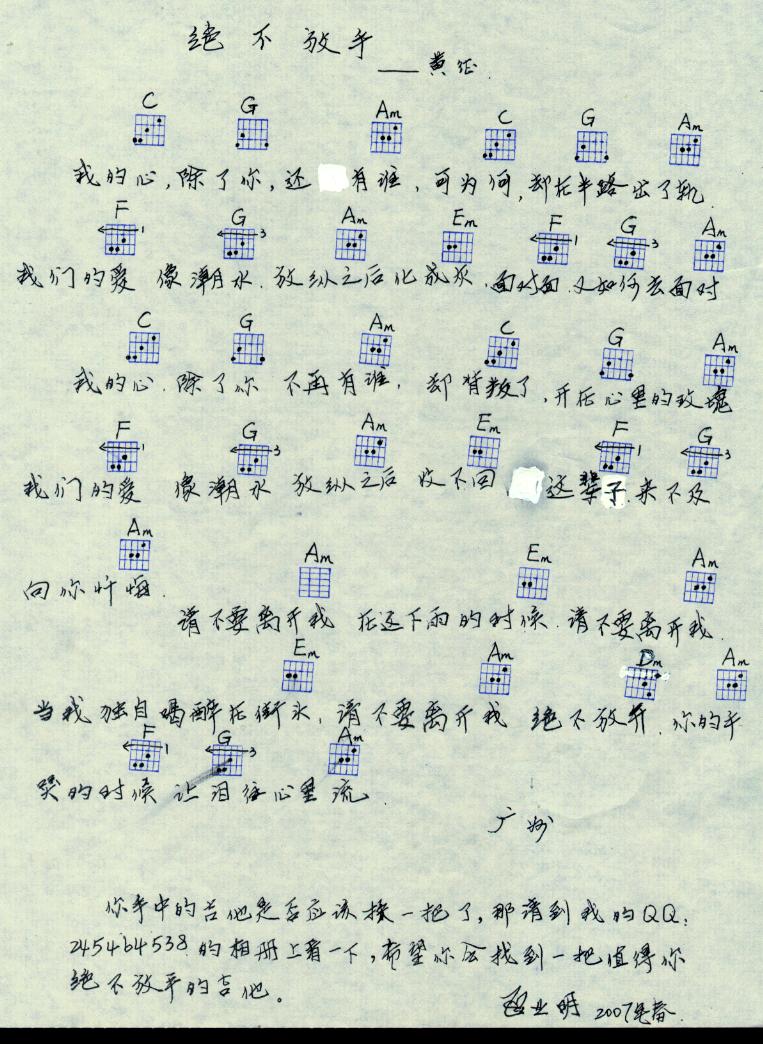 绝不放手
——黄征
C G Am C G Am
我的心,除了你,还 有谁,可为何,却在半路出了轨
F 1 G 3 Am Em F 1 G 3 Am
我们的爱 像潮水.放纵之后化成灰.面对面.又如何去面对
C G Am C G Am
我的心.除了你 不再有谁,却背叛了,开在心里的玫瑰
F 1 G 3 Am Em F 1 G 3
我们的爱 像潮水 放纵之后 收不回, 这辈子.来不及
Am Am Em Am
向你忏悔.
请不要离开我 在这下雨的时候.请不要离开我.
Em Am Dm Am
当我独自喝醉在街头,请不要离开我 绝不放弃.你的手
F 1 G 3 Am
哭的时候 让泪往心里流.
广州
你手中的吉他是否应该换一把了,那请到我的QQ:
245464538.的相册上看一下,希望你会找到一把值得你
绝不放手的吉他。
业明 2007年春.